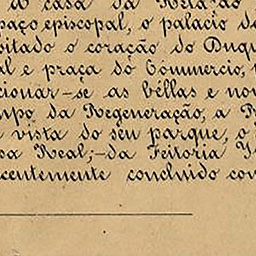 casa da Relação
paço episcopal, o palacio do
o coração do Duqu
e praça do Commercio,
cionar-se as bellas e no
da Regeneração, a
vista do seu parque, o
Real;-da Feitoria
centemente concluido co